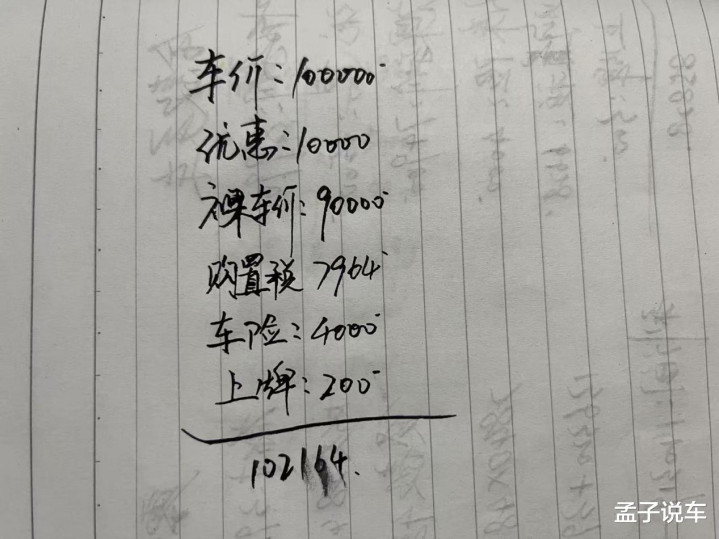 车价:100000
优惠:10000
裸车价:90000
购置税 7964
车险:4000
上牌:200
102164.
孟子说车